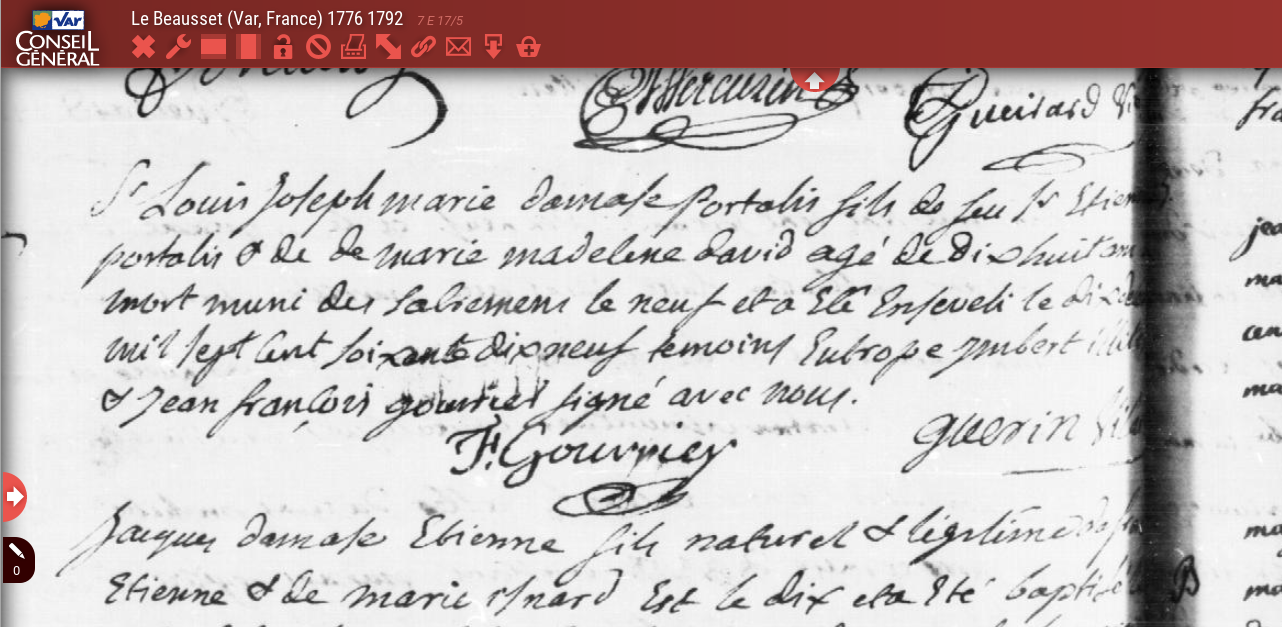 Le Beausset (Var, France) 1776 1792 7 E 17/5
VAR
CONSEIL
GÉNÉRAL
Mercurin Gueirard
Sr Louis Joseph marie damase portalis fils de feu Sr Etienne
portalis & de de marie madeleine david agé de dixhuit ans
mort muni des sacremens le neuf et a Eté Enseveli le dix
mil sept cent soixante dix neuf temoins Eutrope imbert
& Jean françois gourrier signé avec nous.
F. Gourrier guerin
Jacques damase Etienne fils naturel & légitime
Etienne & de marie isnard Est le dix et a Eté baptisé
0